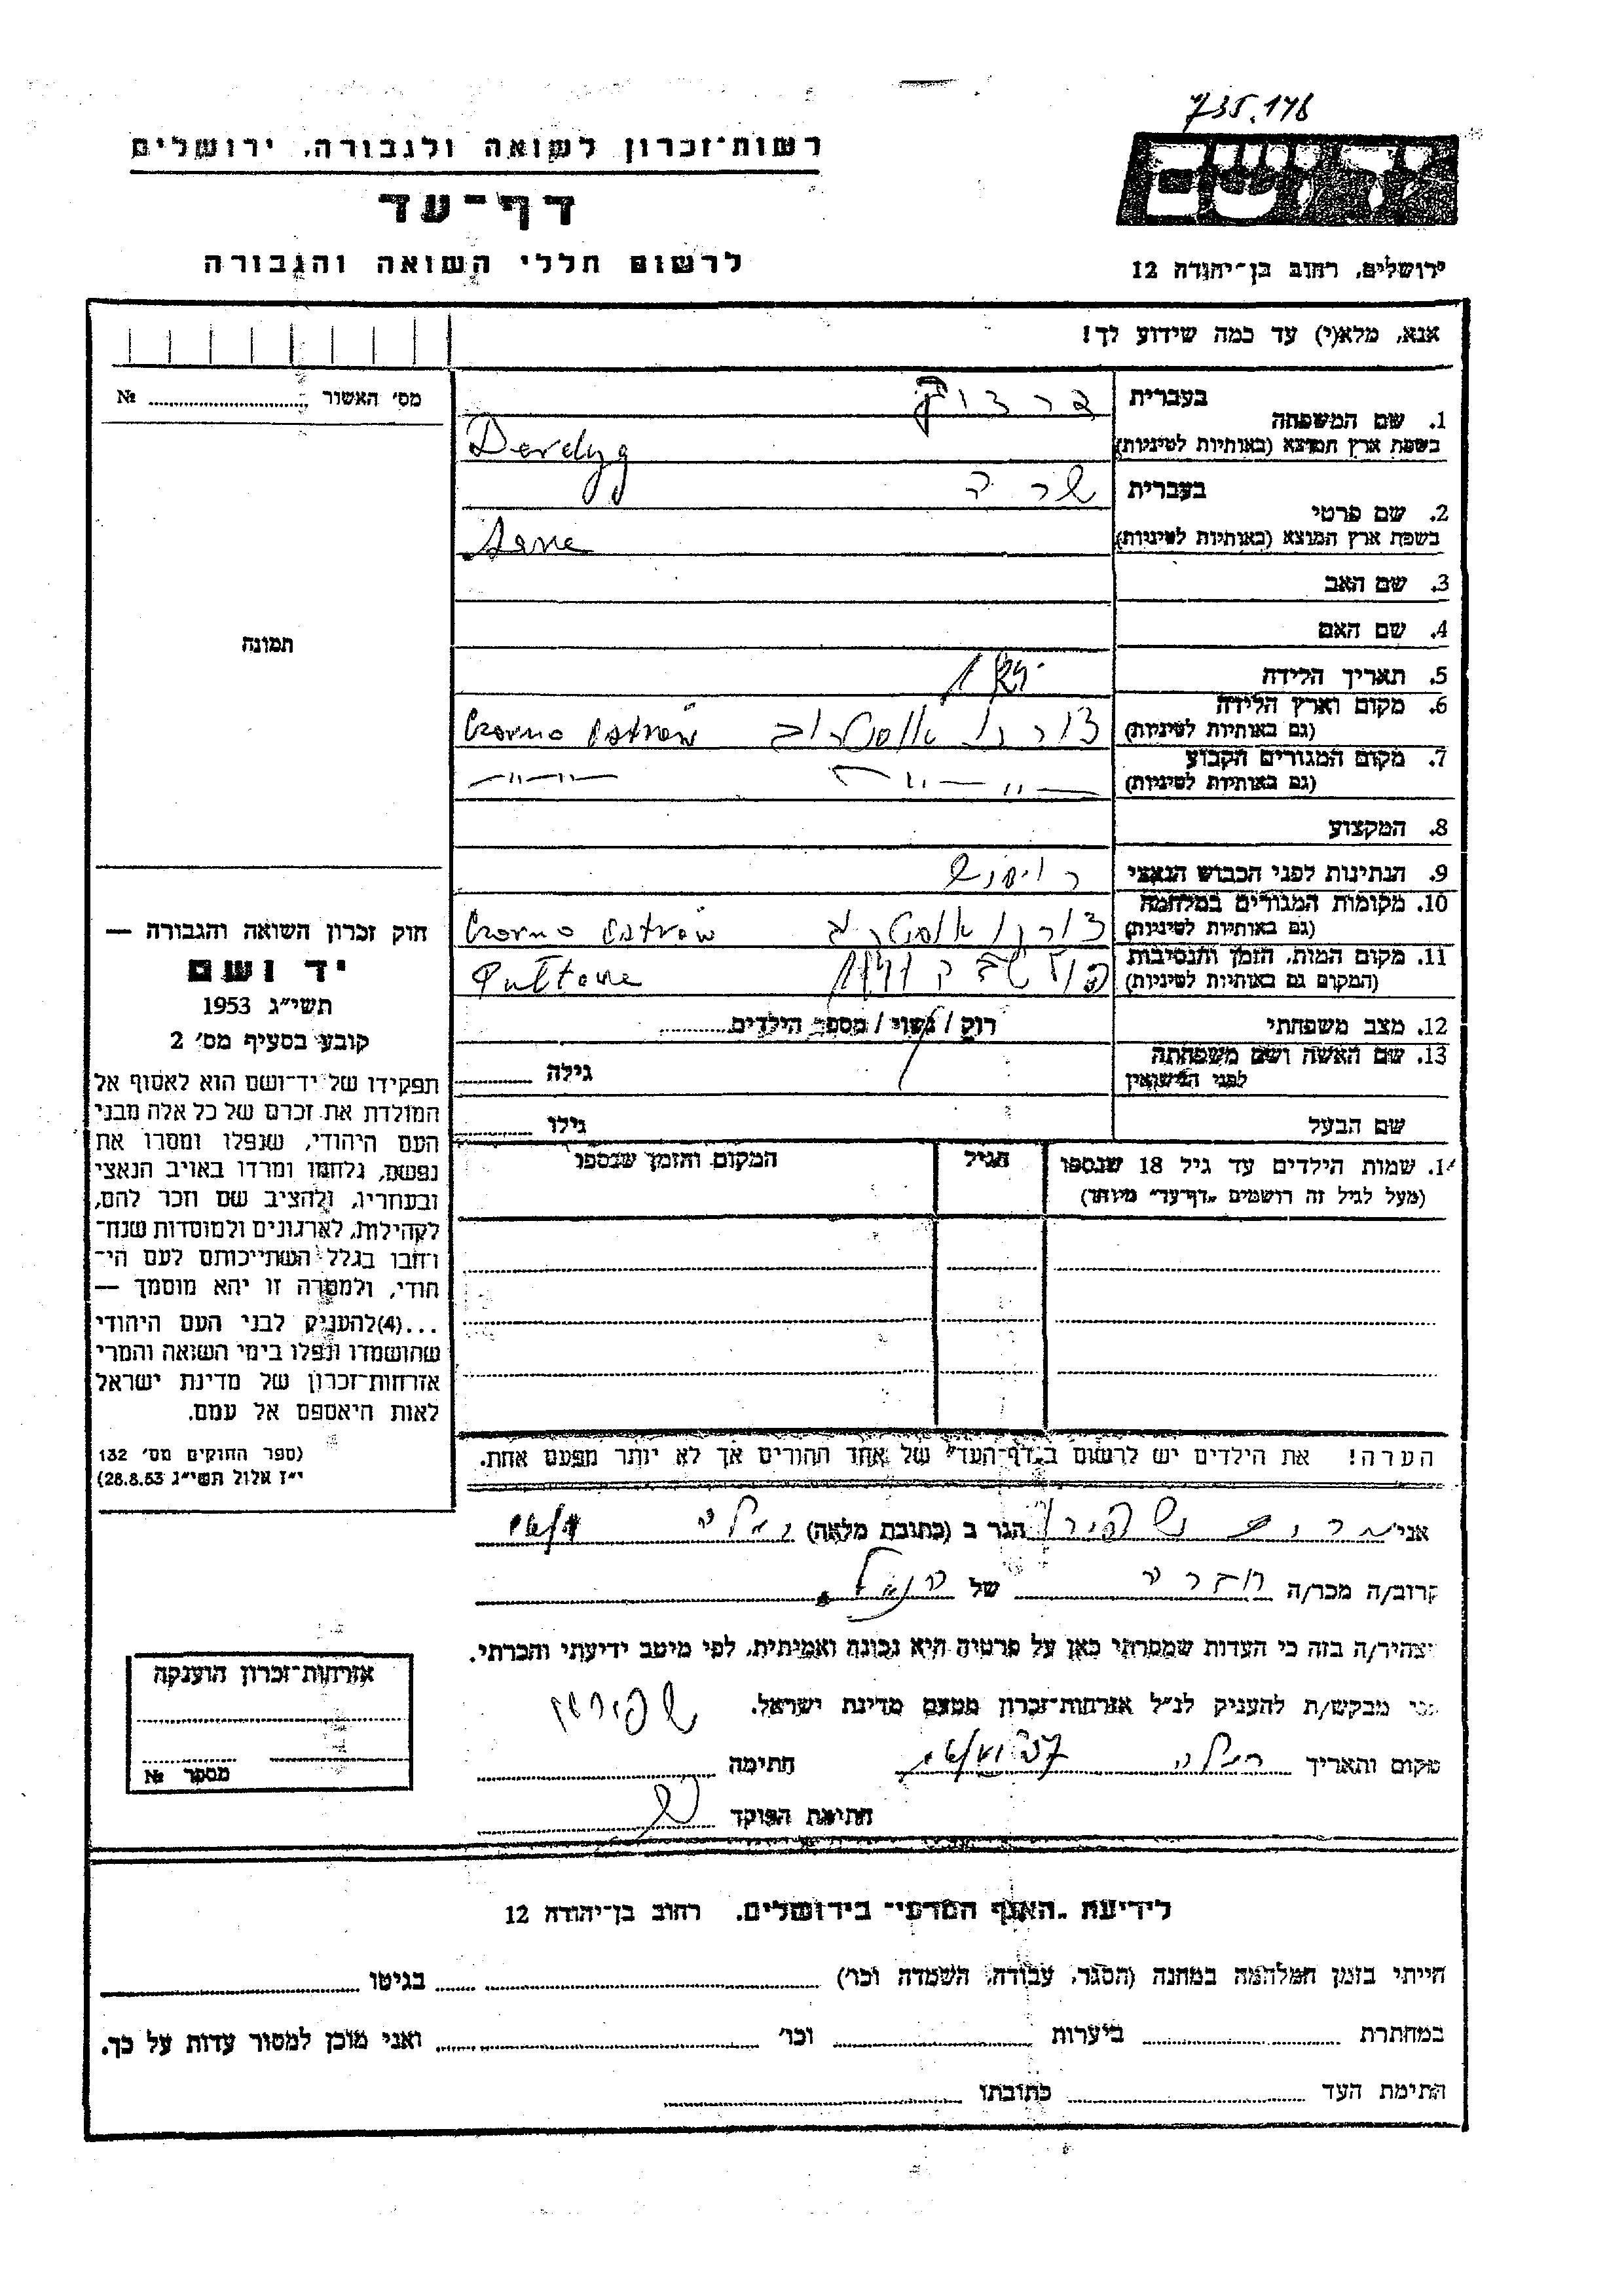 735.178
יד ושם
רשות־זכרון לשואה ולגבורה, ירושלים
דף־עד
לרשום חללי השואה והגבורה
ירושלים, רחוב בן־יהודה 12
אנא, מלא(י) עד כמה שידוע לך!
מס׳ האשור № 
בעברית
1. שם המשפחה
בשפת ארץ המוצא (באותיות לטיניות) Derdyg
בעברית שרה
2. שם פרטי
בשפת ארץ המוצא (באותיות לטיניות)
3. שם האב
4. שם האם
תמונה
5. תאריך הלידה
6. מקום וארץ הלידה
(גם באותיות לטיניות) צורנו אוסטרוב Czorno Ostrów
7. מקום המגורים הקבוע
(גם באותיות לטיניות) — ״ — ״ — — ״ — ״ —
8. המקצוע
9. הנתינות לפני הכבוש הנאצי
10. מקומות המגורים במלחמה
(גם באותיות לטיניות) Czorno Ostrów
11. מקום המות, הזמן והנסיבות
(המקום גם באותיות לטיניות) 1941
12. מצב משפחתי רוק / נשוי / מספר הילדים
13. שם האשה ושם משפחתה
לפני הנישואין גילה
שם הבעל גילו
חוק זכרון השואה והגבורה —
יד ושם
תשי״ג 1953
קובע בסעיף מס׳ 2
תפקידו של יד־ושם הוא לאסוף אל
המולדת את זכרם של כל אלה מבני
העם היהודי, שנפלו ומסרו את
נפשם, נלחמו ומרדו באויב הנאצי
ובעוזריו, ולהציב שם וזכר להם,
לקהילות, לארגונים ולמוסדות שנח־
רבו בגלל השתייכותם לעם הי־
הודי, ולמטרה זו יהא מוסמך —
...(4)להעניק לבני העם היהודי
שהושמדו ונפלו בימי השואה והמרי
אזרחות־זכרון של מדינת ישראל
לאות היאספם אל עמם.
(ספר החוקים מס׳ 132
י״ז אלול תשי״ג 28.8.53)
14. שמות הילדים עד גיל 18 שנספו הגיל המקום והזמן שנספו
(מעל לגיל זה רושמים „דף־עד״ מיוחד)
הערה! את הילדים יש לרשום ב„דף־העד״ של אחד ההורים אך לא יותר מפעם אחת.
אני הגר ב (כתובת מלאה)
קרוב/ה מכר/ה של
מצהיר/ה בזה כי העדות שמסרתי כאן על פרטיה היא נכונה ואמיתית, לפי מיטב ידיעתי והכרתי.
אני מבקש/ת להעניק לנ״ל אזרחות־זכרון מטעם מדינת ישראל.
מקום והתאריך רמלה חתימה
חתימת הפוקד
אזרחות־זכרון הוענקה
מספר №
לידיעת „האגף המדעי״ בירושלים, רחוב בן־יהודה 12
הייתי בזמן המלחמה במחנה (הסגר, עבודה, השמדה וכו׳) בגיטו
במחתרת ביערות וכו׳ ואני מוכן למסור עדות על כך.
חתימת העד כתובתו